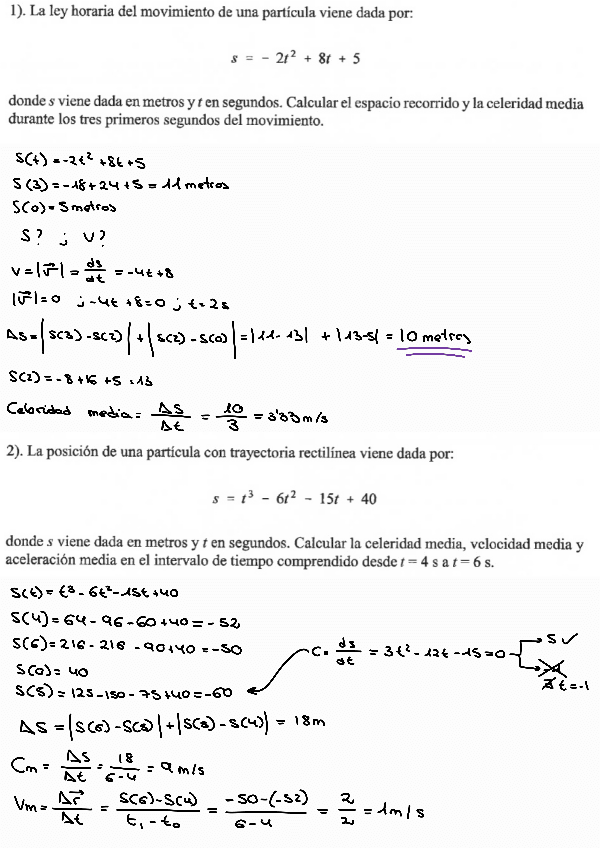 1). La ley horaria del movimiento de una partícula viene dada por:
s = - 2t² + 8t + 5
donde s viene dada en metros y t en segundos. Calcular el espacio recorrido y la celeridad media
durante los tres primeros segundos del movimiento.
S(t) = -2t² + 8t + 5
S(3) = -18 + 24 + 5 = 11 metros
S(0) = 5 metros
S? ; V?
V = |v⃗| = ds/dt = -4t + 8
|v⃗| = 0 ; -4t + 8 = 0 ; t = 2s
ΔS = |S(3) - S(2)| + |S(2) - S(0)| = |11 - 13| + |13 - 5| = 10 metros
S(2) = -8 + 16 + 5 = 13
Celeridad media = ΔS/Δt = 10/3 = 3'33 m/s
2). La posición de una partícula con trayectoria rectilínea viene dada por:
s = t³ - 6t² - 15t + 40
donde s viene dada en metros y t en segundos. Calcular la celeridad media, velocidad media y
aceleración media en el intervalo de tiempo comprendido desde t = 4 s a t = 6 s.
S(t) = t³ - 6t² - 15t + 40
S(4) = 64 - 96 - 60 + 40 = -52
S(6) = 216 - 216 - 90 + 40 = -50
C = ds/dt = 3t² - 12t - 15 = 0 → 5 ✓
-1 ∄ t = -1
S(0) = 40
S(5) = 125 - 150 - 75 + 40 = -60
ΔS = |S(6) - S(5)| + |S(5) - S(4)| = 18 m
Cm = ΔS/Δt = 18/6-4 = 9 m/s
Vm = Δr⃗/Δt = S(6) - S(4)/t₁ - t₀ = -50 - (-52)/6 - 4 = 2/2 = 1 m/s